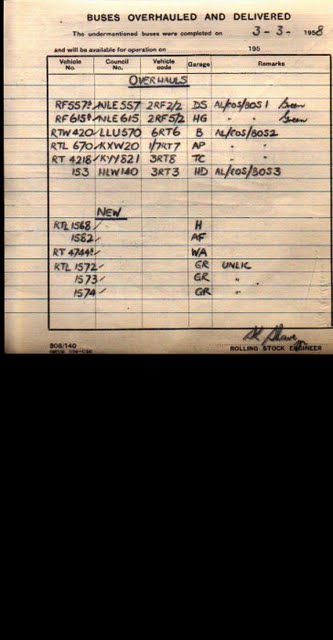 BUSES OVERHAULED AND DELIVERED
The undermentioned buses were completed on 3-3- 1958
and will be available for operation on 195
Vehicle No. Council No. Vehicle code Garage Remarks
OVERHAULS
RF557 NLE557 2RF2/2 DS AL/COS/BOS1 Green
RF615 NLE615 2RF5/2 HG " " Green
RTW420 LLU570 6RT6 B AL/COS/BOS2
RTL 670 KXW20 1/7RT7 AP " "
RT 4218 KYY821 3RT8 TC " "
153 HLW140 3RT3 HD AL/COS/BOS3
NEW
RTL 1568 H
1582 AF
RT 4744 WA
RTL 1572 GR UNLIC
1573 GR "
1574 GR "
808/140
ROLLING STOCK ENGINEER